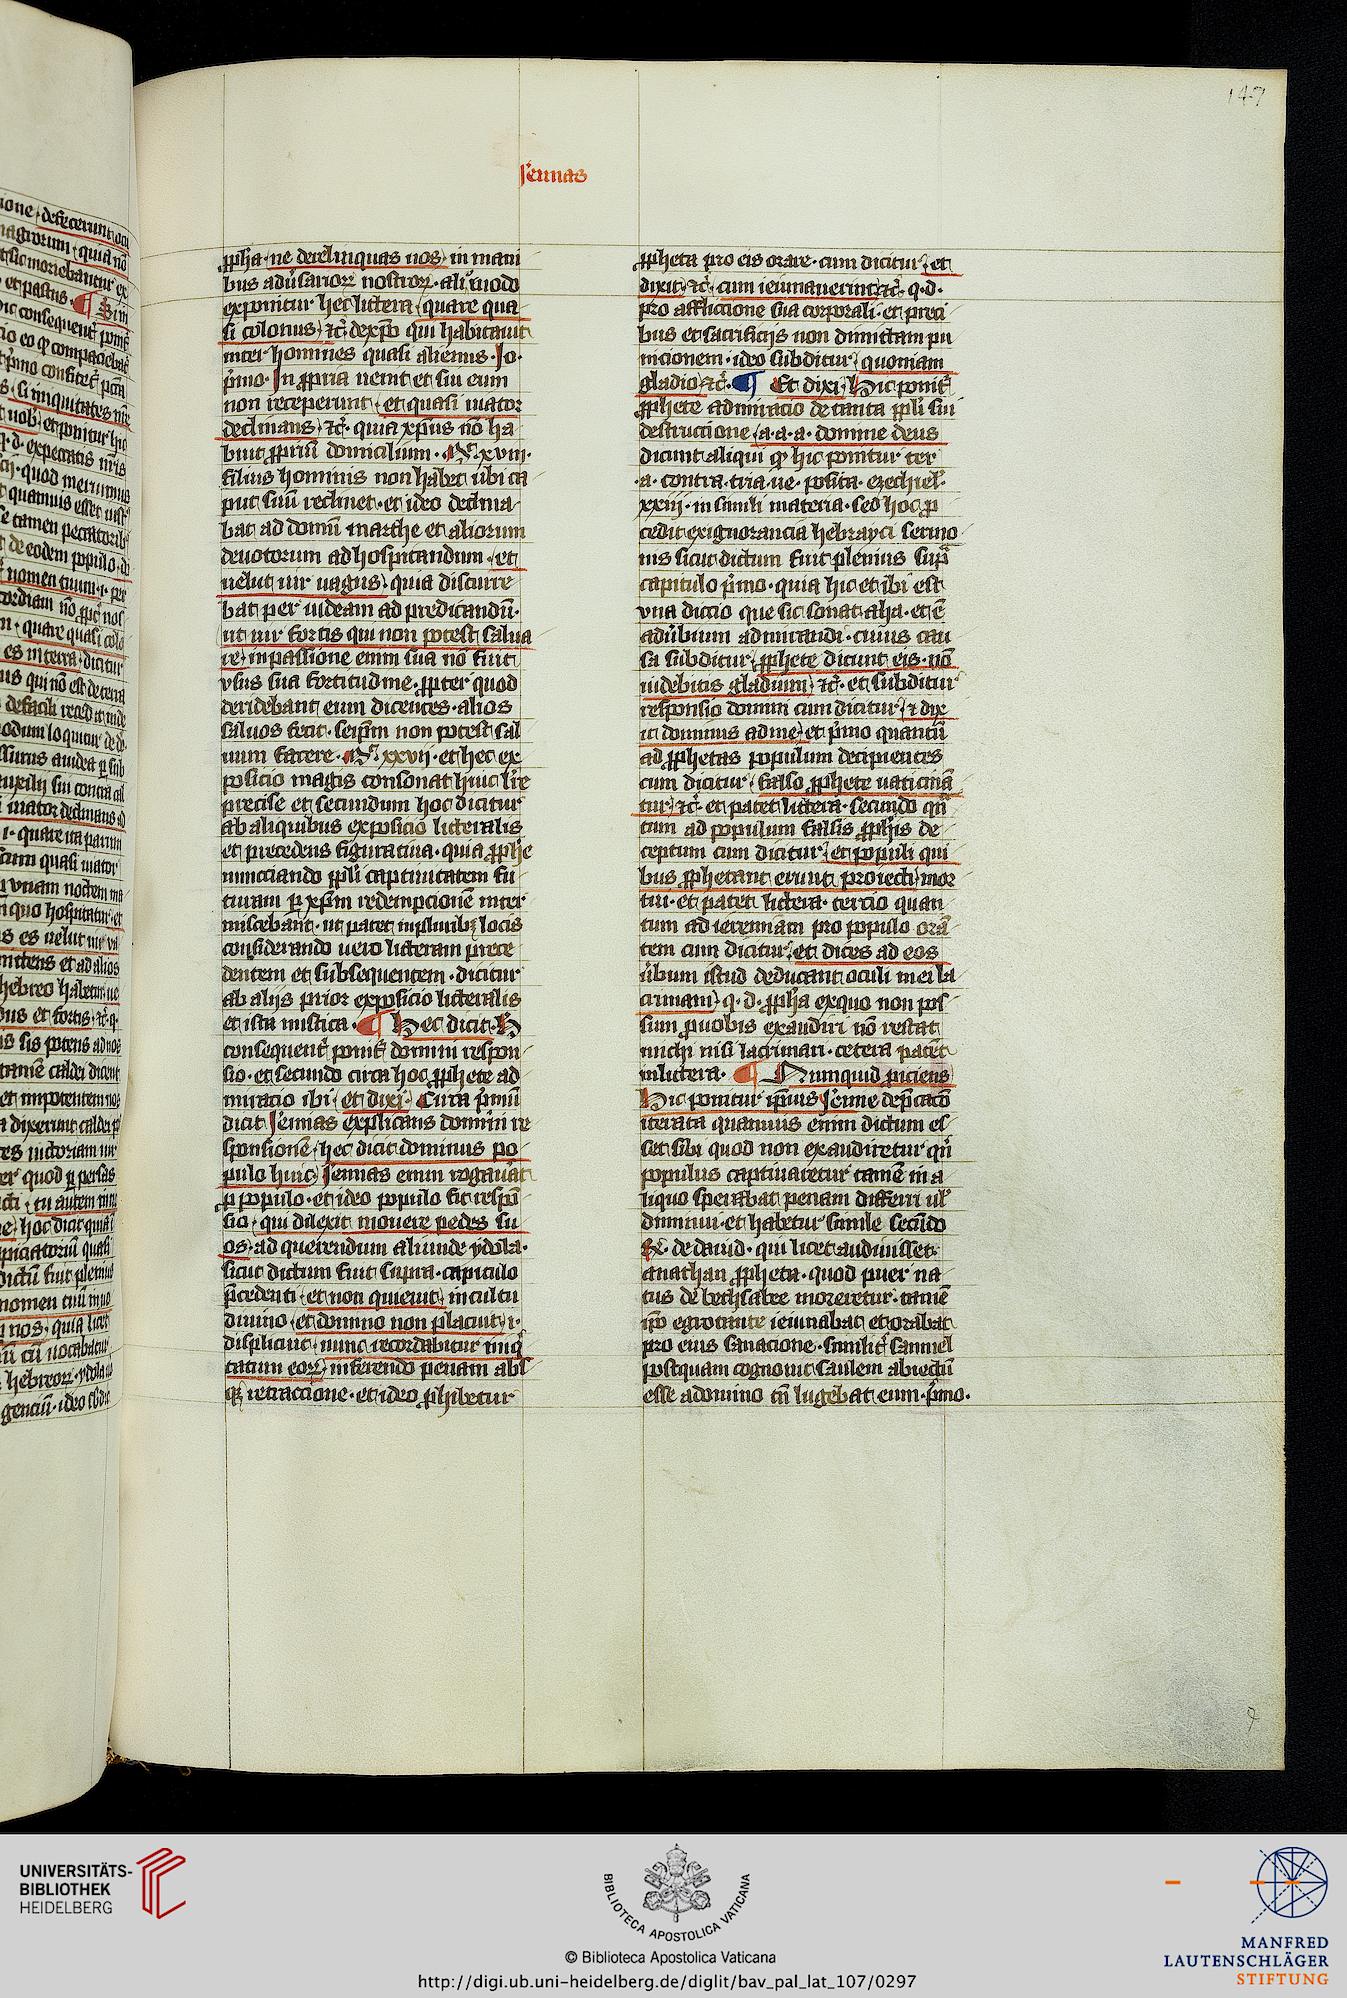 147
Jeremias
ppha ne derelinquas nos in mani
bus adversarior nostror. alio modo
exponitur hec littera quare qua
si colonus etc. de xpo qui habitavit
inter homines quasi alienus. Jo.
primo. In propria venit et sui eum
non receperunt et quasi viator
declinans etc. quia xpus non ha
buit proprium domicilium. Mt. xviii.
filius hominis non habet ubi ca
put suum reclinet. et ideo declina
bat ad domum marthe et aliorum
devotorum ad hospitandum. et
velut vir vagus. quia discurre
bat per iudeam ad predicandum.
ut vir fortis qui non potest salva
re in passione enim sua non fuit
usus sua fortitudine. propter quod
deridebant eum dicentes. alios
salvos fecit. seipsm non potest sal
vum facere. Mt. xxvii. et hec ex
posicio magis consonat huic lre
precise et secundum hoc dicitur
ab aliquibus exposicio litteralis
et precedens figurativa. quia pphe
nuncciando ppli captivitatem fu
turam per xpm redempcionem inter
miscebant. ut patet in pluribus locis
considerando vero litteram prece
dentem et subsequentem. dicitur
ab aliis prior exposicio litteralis
et ista mistica. ¶ Hec dicit. H
consequenter ponitur domini respon
sio. et secundo circa hoc pphete ad
miracio ibi et dixi. Circa primum
dicit Jeremias explicans domini re
sponsionem hec dicit dominus po
pulo huic Jeremias enim rogaverat
pro populo. et ideo populo fit respon
sio. qui dilexit movere pedes su
os. ad querendum aliunde ydola.
sicut dictum fuit supra. capitulo
precedenti et non quievit in cultu
divino et domino non placuit i.
displicuit nunc recordabitur iniqui
tatum eorum inferendo penam abs
que retraccione. et ideo prohibetur
ppheta pro eis orare. cum dicitur et
dixit etc. cum ieiunaverint etc. q.d.
pro affliccione sua corporali. et preci
bus et sacrificiis non dimittam pu
nicionem. ideo subditur quoniam
gladio etc. ¶ Et dixi Hic ponitur
pphete admiracio de tanta ppli sui
destruccione a. a. a. domine deus
dicunt aliqui quod hic ponitur ter
.a. contra tria ve. posita. ezechiel.
xxiij. in simili materia. sed hoc pro
cedit ex ignorancia hebrayci sermo
nis sicut dictum fuit plenius supra
capitulo primo. quia hic et ibi est
una dictio que sic sonat aha. et est
adverbium admirandi. cuius cau
sa subditur pphete dicunt eis. non
videbitis gladium etc. et subditur
responsio domini cum dicitur et dix
it dominus ad me et primo quantum
ad pphetas populum decipientes
cum dicitur falso pphete vaticinan
tur etc. et patet littera. secundo quan
tum ad populum falsis pphis de
ceptum cum dicitur et populi qui
bus pphetant erunt proiecti mor
tui. et patet littera. tercio quan
tum ad ieremiam pro populo oran
tem cum dicitur et dices ad eos
verbum istud deducant oculi mei la
crimam q.d. ppha ex quo non pos
sum pro vobis exaudiri non restat
michi nisi lacrimari. cetera patent
in littera. ¶ Numquid proiciens
Hic ponitur ipsius Jeremie deprecacio
iterata quamvis enim dictum es
set sibi quod non exaudiretur quin
populus captivaretur tamen in a
liquo sperabat penam differri vel
diminui. et habetur simile secundo
R. de david. qui licet audivisset.
a nathan ppheta. quod puer na
tus de bethsabee moreretur. tamen
ipso egrotante ieiunabat et orabat
pro eius sanacione. similiter samuel
postquam cognovit saulem abiectum
esse a domino tamen lugebat eum. primo.
UNIVERSITÄTS-
BIBLIOTHEK
HEIDELBERG
BIBLIOTECA APOSTOLICA VATICANA
© Biblioteca Apostolica Vaticana
http://digi.ub.uni-heidelberg.de/diglit/bav_pal_lat_107/0297
MANFRED
LAUTENSCHLÄGER
STIFTUNG